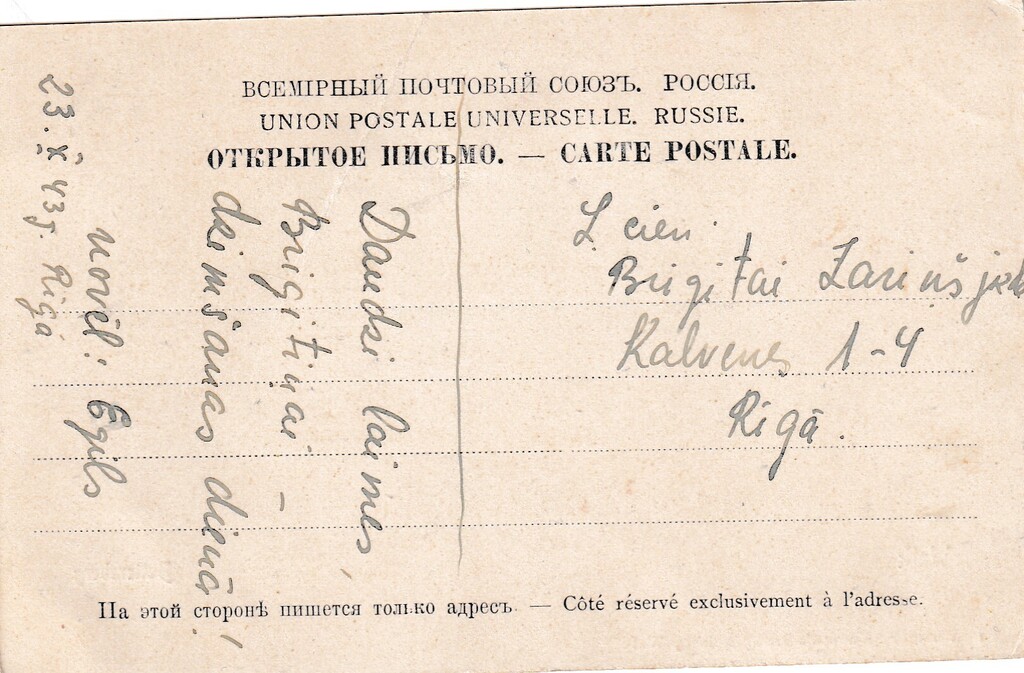 ВСЕМІРНЫЙ ПОЧТОВЫЙ СОЮЗЪ. РОССІЯ.
UNION POSTALE UNIVERSELLE. RUSSIE.
ОТКРЫТОЕ ПИСЬМО. — CARTE POSTALE.
Daudzi laimes
Brigitiņai —
dzimšanas dienā!
novēl: Egils
23. X 43g. Rīgā
L cien.
Brigitai Zariņš jek
Kalvenes 1-4
Rīgā.
На этой сторонѣ пишется только адресъ. — Côté réservé exclusivement à l'adresse.